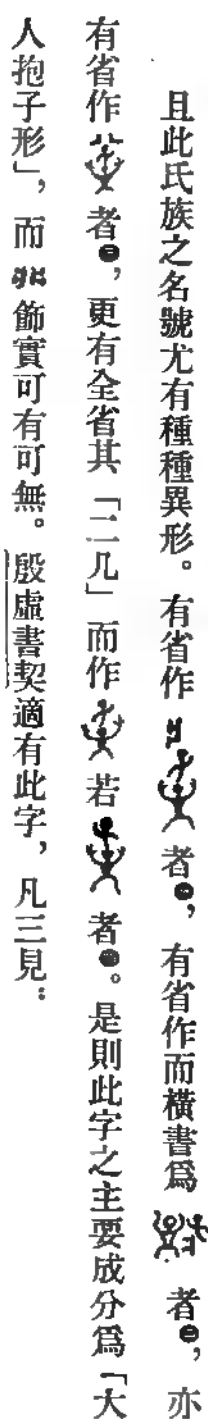 且此氏族之名號尤有種種異形。有省作者，有省作而橫書爲者，亦
有省作者，更有全省其「二几」而作若者。是則此字之主要成分爲「大
人抱子形」，而飾實可有可無。殷虛書契適有此字，凡三見：